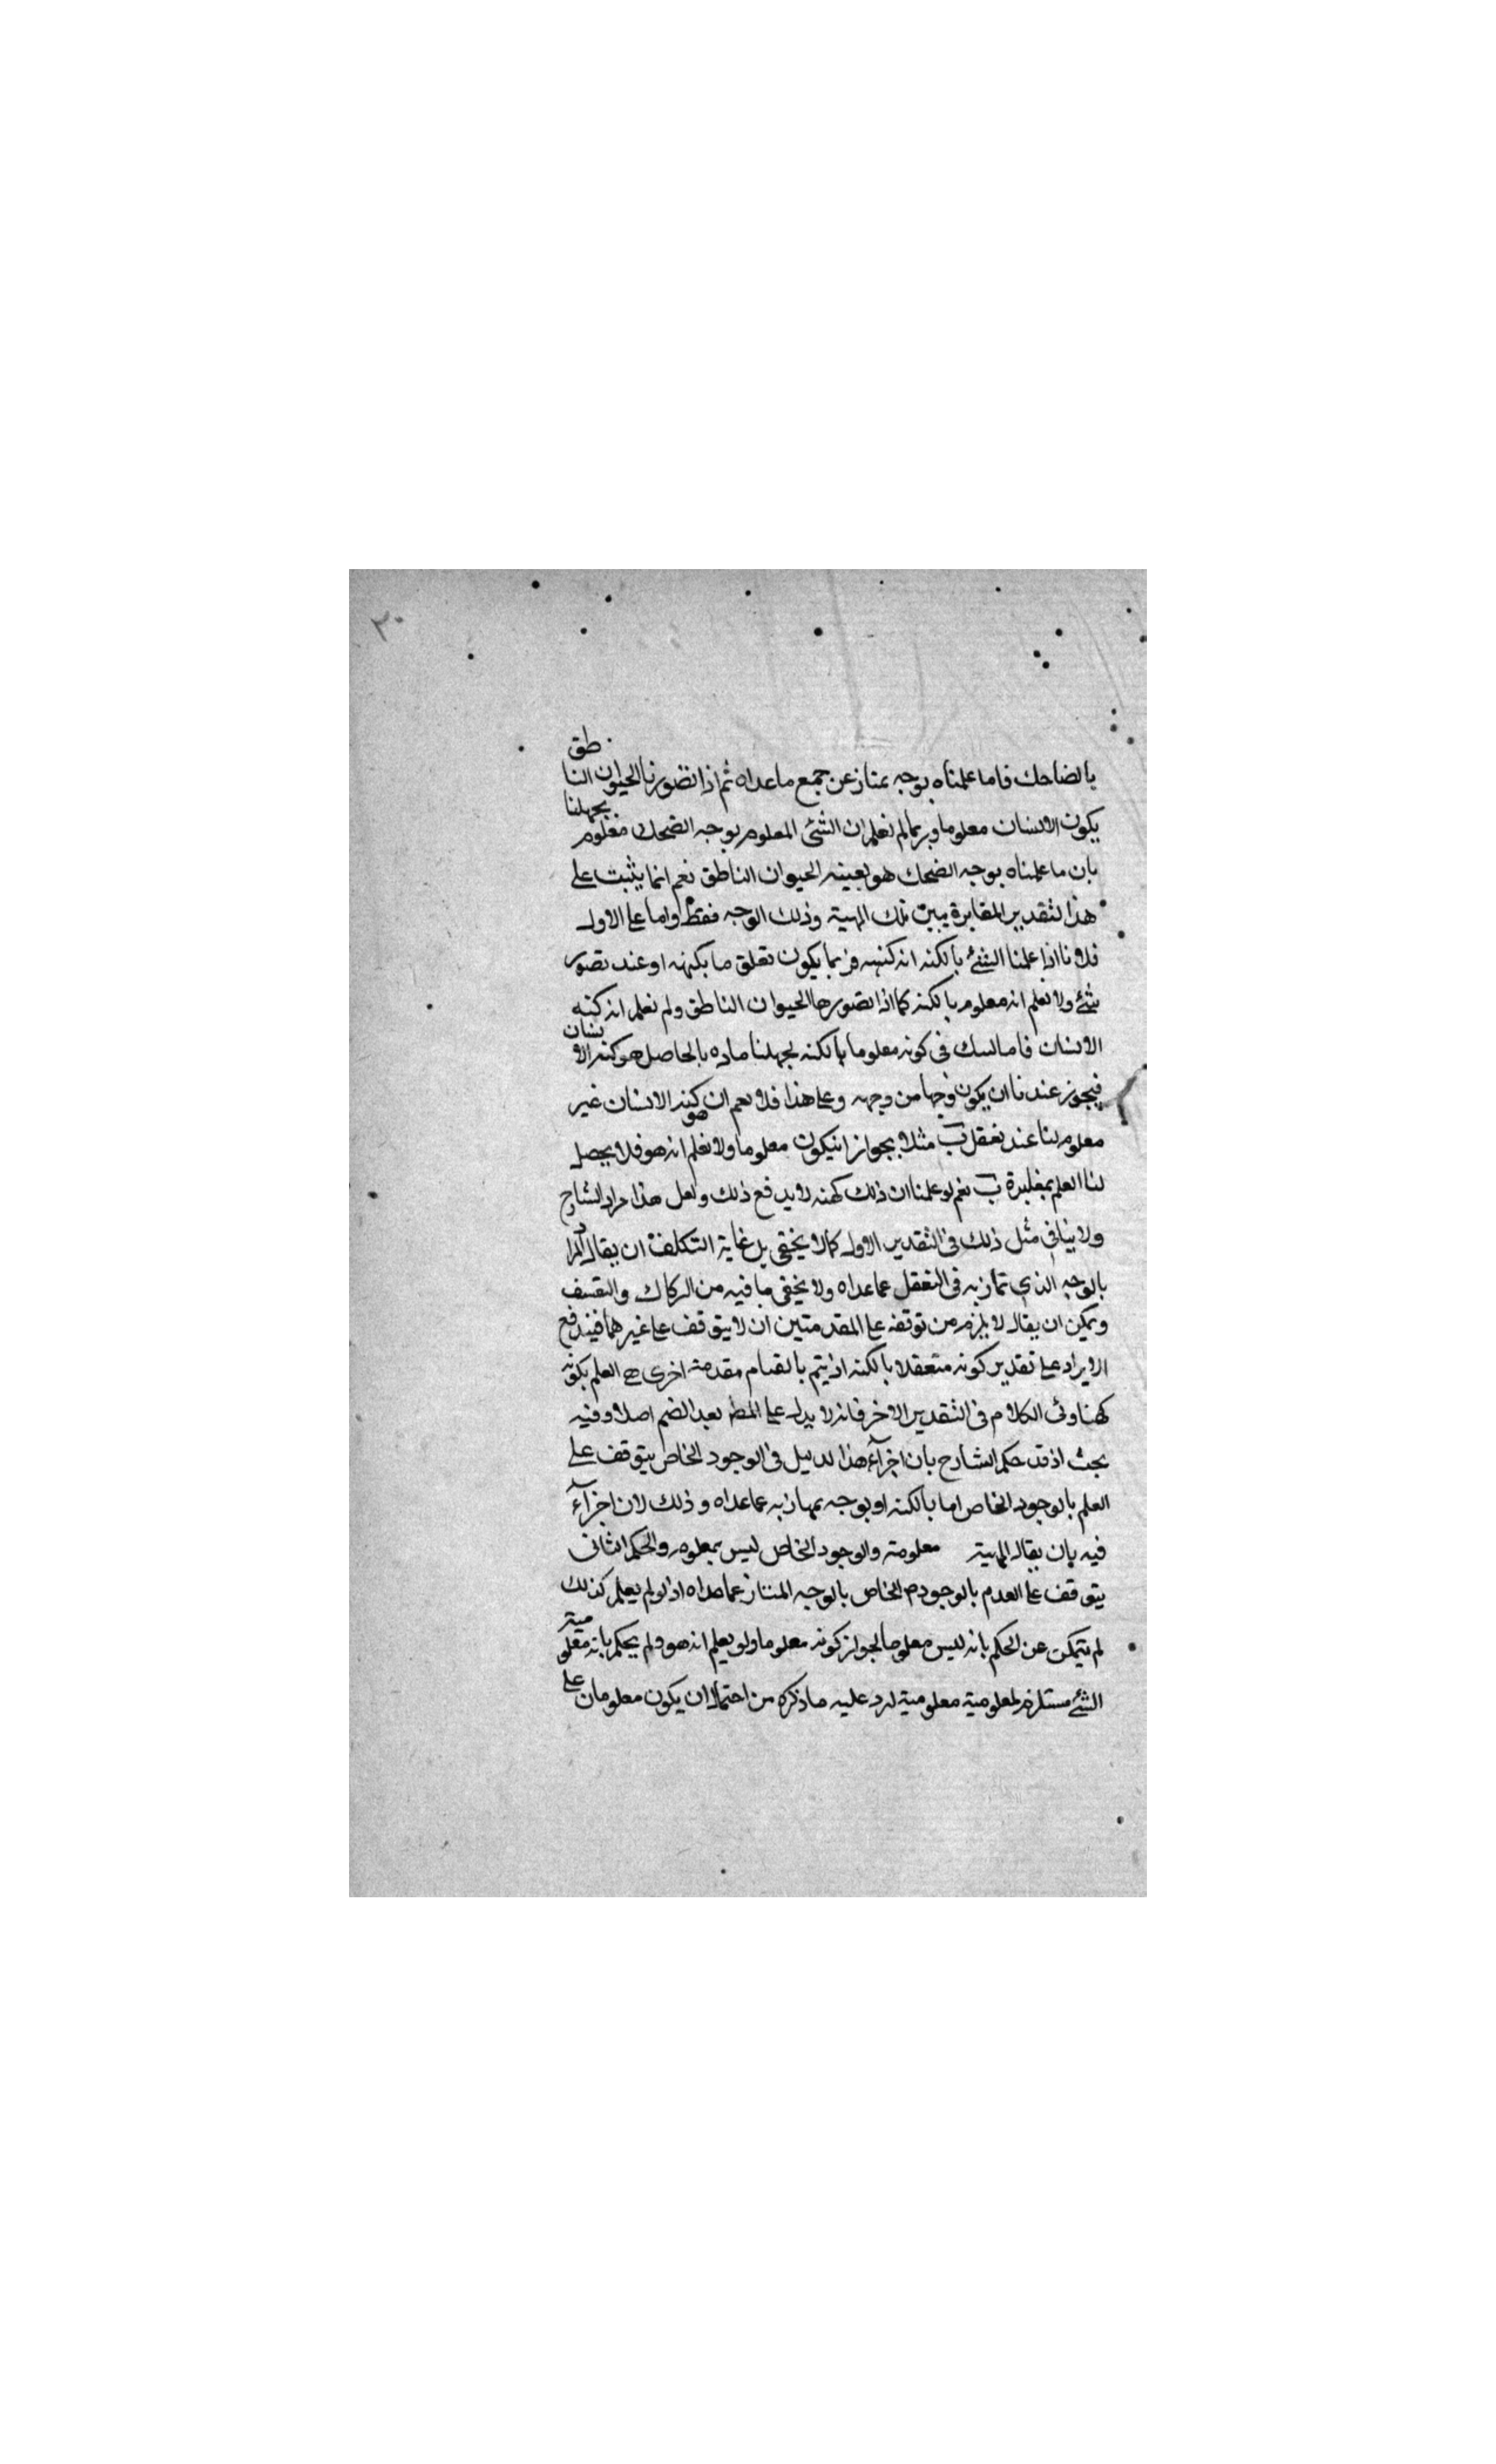 ٣٠
بالضاحك فاما علمناه بوجه يمتاز عن جميع ما عداه ثم اذا تصورنا الحيوان الناطق
يكون الانسان معلوما وربما لم نعلم ان الشئ المعلوم بوجه الضحك معلوم بجهلنا
بان ما علمناه بوجه الضحك هو بعينه الحيوان الناطق نعم انما يثبت على
هذا التقدير المغايرة بين تلك المهية وذلك الوجه فقط واما على الاول
فلانا اذا علمنا الشئ بالكنه انه كنهه فربما يكون تعلق ما بكنهه او عند تصور
شئ ولا نعلم انه معلوم بالكنه كما اذا تصورها الحيوان الناطق ولم نعلم انه كنه
الانسان فاما لسك فى كونه معلوما بالكنه لجهلنا ماده بالحاصل هو كنه الانسان
فيجوز عندنا ان يكون وجها من وجهه وعلى هذا فلا نعم ان كنه الانسان هو غير
معلوم لنا عند تعقل ب مثلا بجواز ان يكون معلوما ولا نعلم انه هو فلا يحصل
لنا العلم بمغايرة ب نعم لو علمنا ان ذلك كهنه لا يدفع ذلك ولعل هذا مراد الشارح
ولا ينافى مثل ذلك فى التقدير الاول كما لا يخفى بل غاية التكلف ان يقال المراد
بالوجه الذى تماز به فى التعقل عما عداه ولا يخفى ما فيه من الركاك والتعسف
ويمكن ان يقال لا يلزم من توقفه على المقدمتين ان لا يتوقف على غيرهما فيندفع
الايراد على تقدير كونه متعقلا بالكنه اذ يتم بانضمام مقدمة اخرى هى العلم بكونه
كهنا وفى الكلام فى التقدير الاخر فانه لا يدل على المط بعد الضم اصلا وفيه
بحث اذ قد حكم الشارح بان اجراء هذا الدليل فى الوجود الخاص يتوقف على
العلم بالوجود الخاص اما بالكنه او بوجه يمتاز به عما عداه وذلك لان اجراء
فيه بان يقال المهية معلومة والوجود الخاص ليس بمعلوم والحكم الثانى
يتوقف على العدم بالوجود الخاص بالوجه الممتاز عما عداه اذ لو لم يعلم كذلك
لم يتمكن عن الحكم بانه ليس معلوما لجواز كونه معلوما ولو يعلم انه هو ولم يحكم بانه معلومية
الشئ مستلزم لمعلومية معلومية لرد عليه ما ذكره من احتمال ان يكون معلومان على